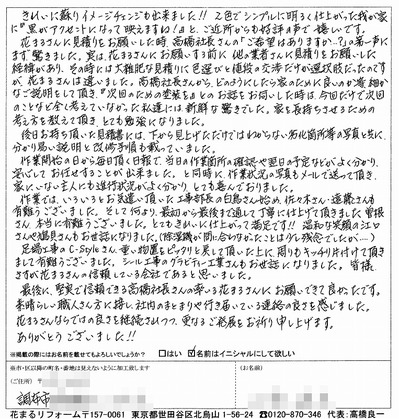 きれいに蘇りイメージチェンジも出来ました!! 2色でシンプルに明るく仕上がった我が家
に『黒がアクセントになって映えますね!』と、ご近所からも好評の声で嬉しいです。
花まるさんに見積りをお願いした時、高橋社長さんの『ご希望はありますか?』の第一声に
まず驚きました。実は、花まるさんにお願いする前に他の業者さんに見積りをお願いした
経緯があり、その時には大雑把な見積りに色選びと値段の交渉だけが選択肢だったのです
が、花まるさんは違いました。高橋社長さんから、どのようにしたら家のために良いのか等細か
なご説明をして頂き『次回のための塗装を』とのお話をお伺いした時は、今回だけで次回
のことなど全く考えていなかった私達には新鮮な驚きでした。家を長持ちさせるための
考え方を教えて頂き、とても勉強になりました。
後日お持ち頂いた見積書には、下から見上げただけではわからない劣化箇所等の写真と共に、
分かり易い説明と改修手順も載っていました。
作業開始の日から毎日頂く日報で、当日の作業箇所の確認や翌日の予定などがよく分かり、
安心してお任せすることが出来ました。と同時に、作業状況の写真もメールで送って頂き、
家にいない主人にも進行状況がよく分かり、とても喜んでおりました。
作業では、いろいろとお気遣い頂いた工事部長の白鳥さん始め、佐々木さん・遠藤さんも
有難うございました。そして何より、最初から最後まで通して丁寧に仕上げて頂きました曽根
さん、本当に有難うございました。とてもきれいに仕上がって満足です!! 温和な笑顔の江口
さんや福島さんもお世話になりました。
足場工事の
重い物置をヒョウリと戻して頂いた上に、周りもキッチリ片付けて頂き
まして有難うございました。シール工事の
さんもお世話になりました。皆様
さすが花まるさんの信頼している会社であると思いました。
最後に、堅実で信頼できる高橋社長さんの率いる花まるさんにお願いできて良かったです。
素晴らしい職人さん方に接し、社内のまとまりや行き届いている連絡の良さを感じました。
花まるさんならではの良さを継続されつつ、更なるご発展をお祈り申し上げます。
ありがとうございました!!
※掲載の際にはお名前を載せてもよろしいでしょうか? □はい ☑名前はイニシャルにして欲しい
※市・区以降の町名・番地は見えないように加工致します
(ご住所) 〒
(お名前)
調布市
花まるリフォーム 〒157-0061 東京都世田谷区北烏山1-56-24 ☎0120-870-346 代表:高橋良一